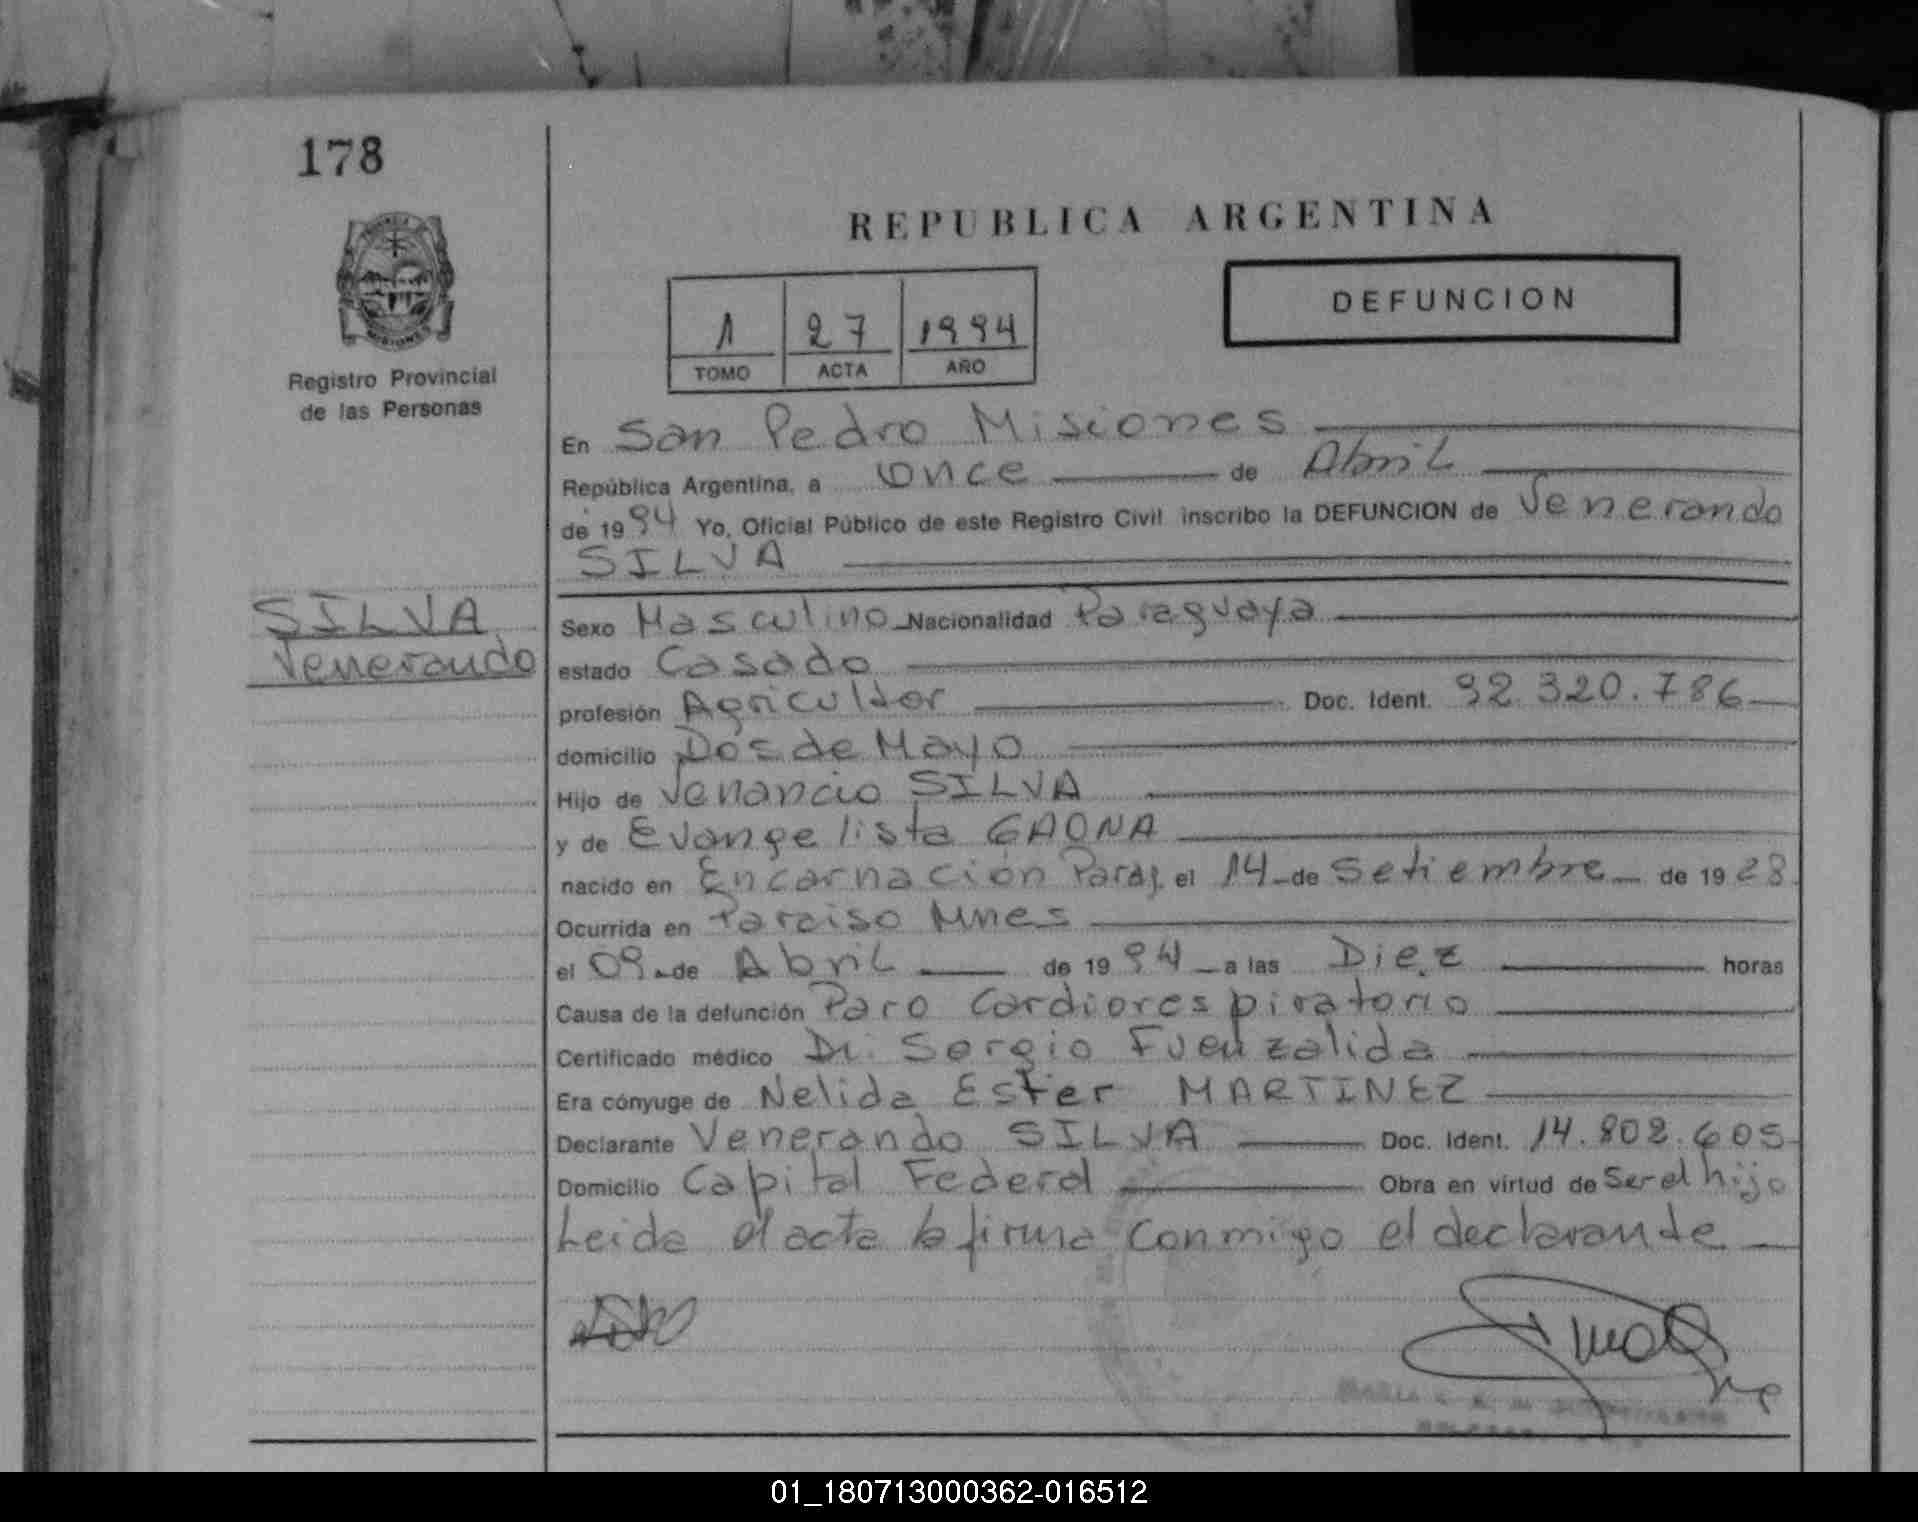 178
REPUBLICA ARGENTINA
PROVINCIA
MISIONES
Registro Provincial
de las Personas
1 27 1994
TOMO ACTA AÑO
DEFUNCION
En San Pedro Misiones
República Argentina, a once de Abril
de 1994 Yo, Oficial Público de este Registro Civil inscribo la DEFUNCION de Venerando
SILVA
SILVA
Venerando
Sexo Masculino Nacionalidad Paraguaya
estado Casado
profesión Agricultor Doc. Ident. 92.320.786
domicilio Dos de Mayo
Hijo de Venancio SILVA
y de Evangelista GAONA
nacido en Encarnación Parag. el 14 de Setiembre de 1928
Ocurrida en Paraiso Mnes
el 09 de Abril de 1994 a las Diez horas
Causa de la defunción Paro Cardiorespiratorio
Certificado médico Dr. Sergio Fuenzalida
Era cónyuge de Nelida Ester MARTINEZ
Declarante Venerando SILVA Doc. Ident. 14.802.605
Domicilio Capital Federal Obra en virtud de Ser el hijo
Leida el acta la firma conmigo el declarante
01_180713000362-016512